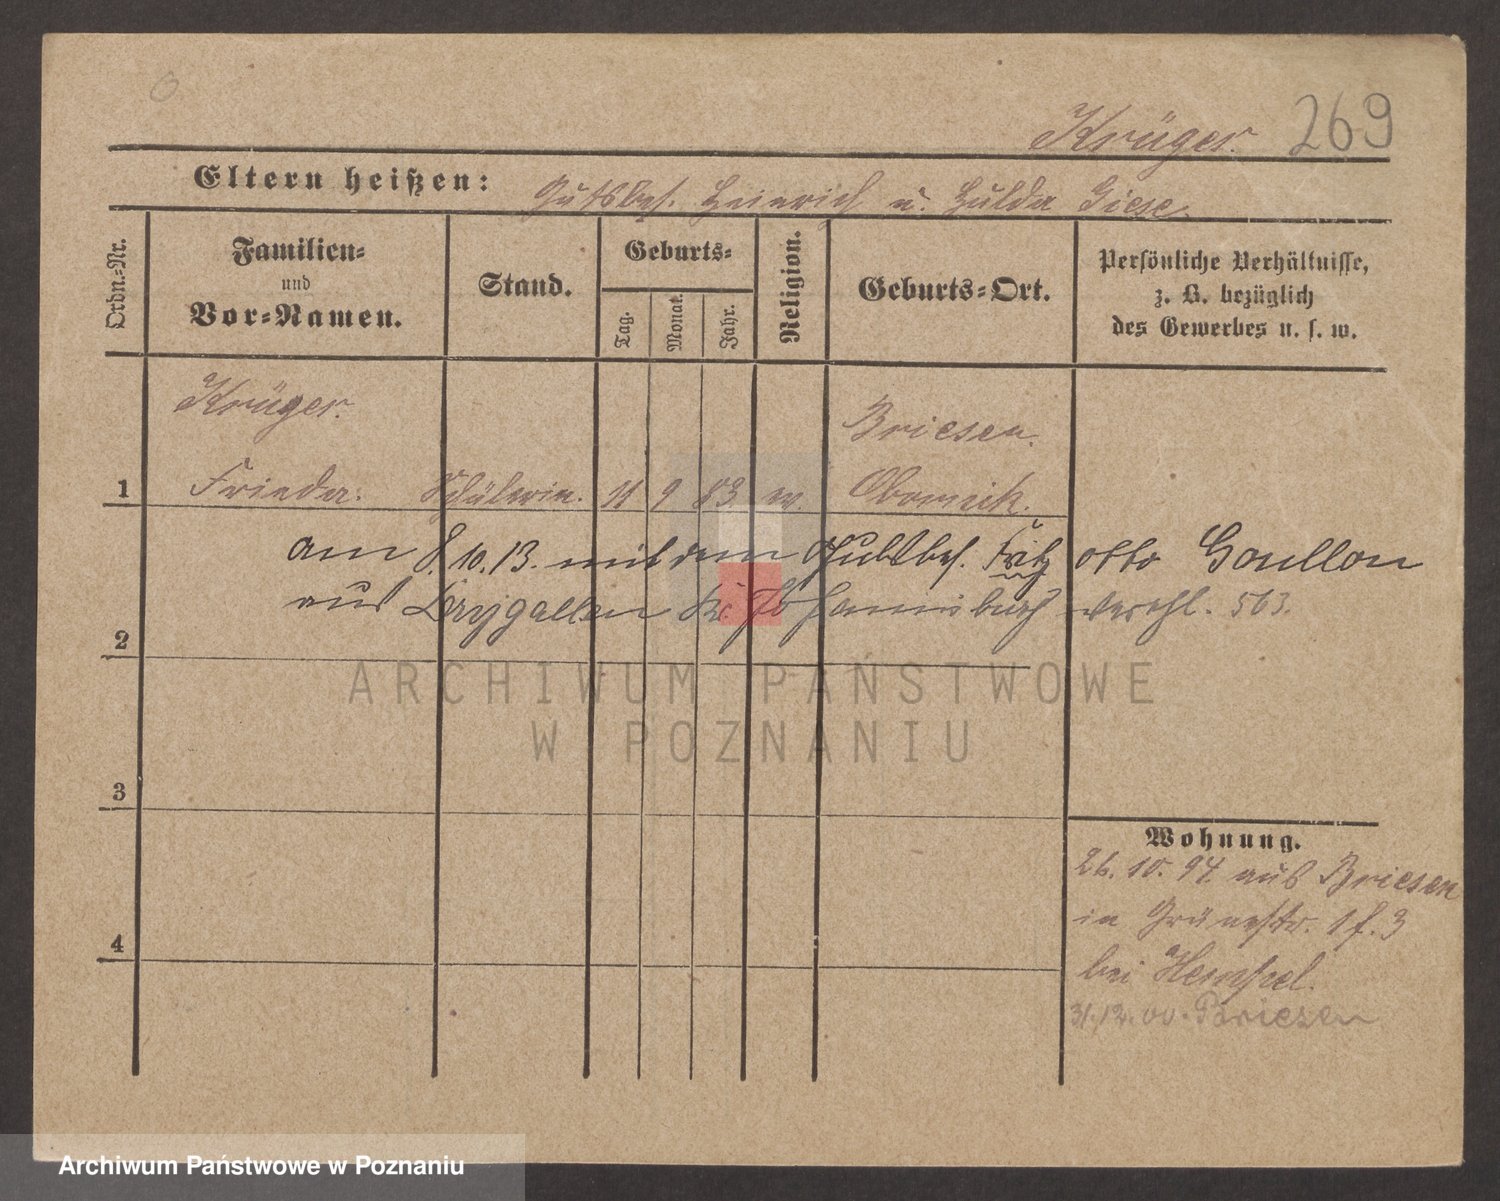 Krüger. 269
Eltern heißen: Gutsbes. Heinrich u. Hulda Giese.
Ordn.=Nr.
Familien=
und
Vor=Namen.
Stand.
Geburts=
Tag.
Monat.
Jahr.
Religion.
Geburts=Ort.
Persönliche Verhältnisse,
z. B. bezüglich
des Gewerbes u. s. w.
Krüger. Briesen.
1 Frieda. Schülerin. 11 9 83 ev. Obornik.
am 8.10.13. mit dem Gutsbes. Fritz Otto Goullon
aus Drygallen Kr. Johannisburg verehl. 563.
2
3
4
Wohnung.
26.10.94 aus Briesen
in Grünestr. 1 f. 3
bei Hensel.
31.12.00. Briesen
ARCHIWUM PAŃSTWOWE
W POZNANIU
Archiwum Państwowe w Poznaniu